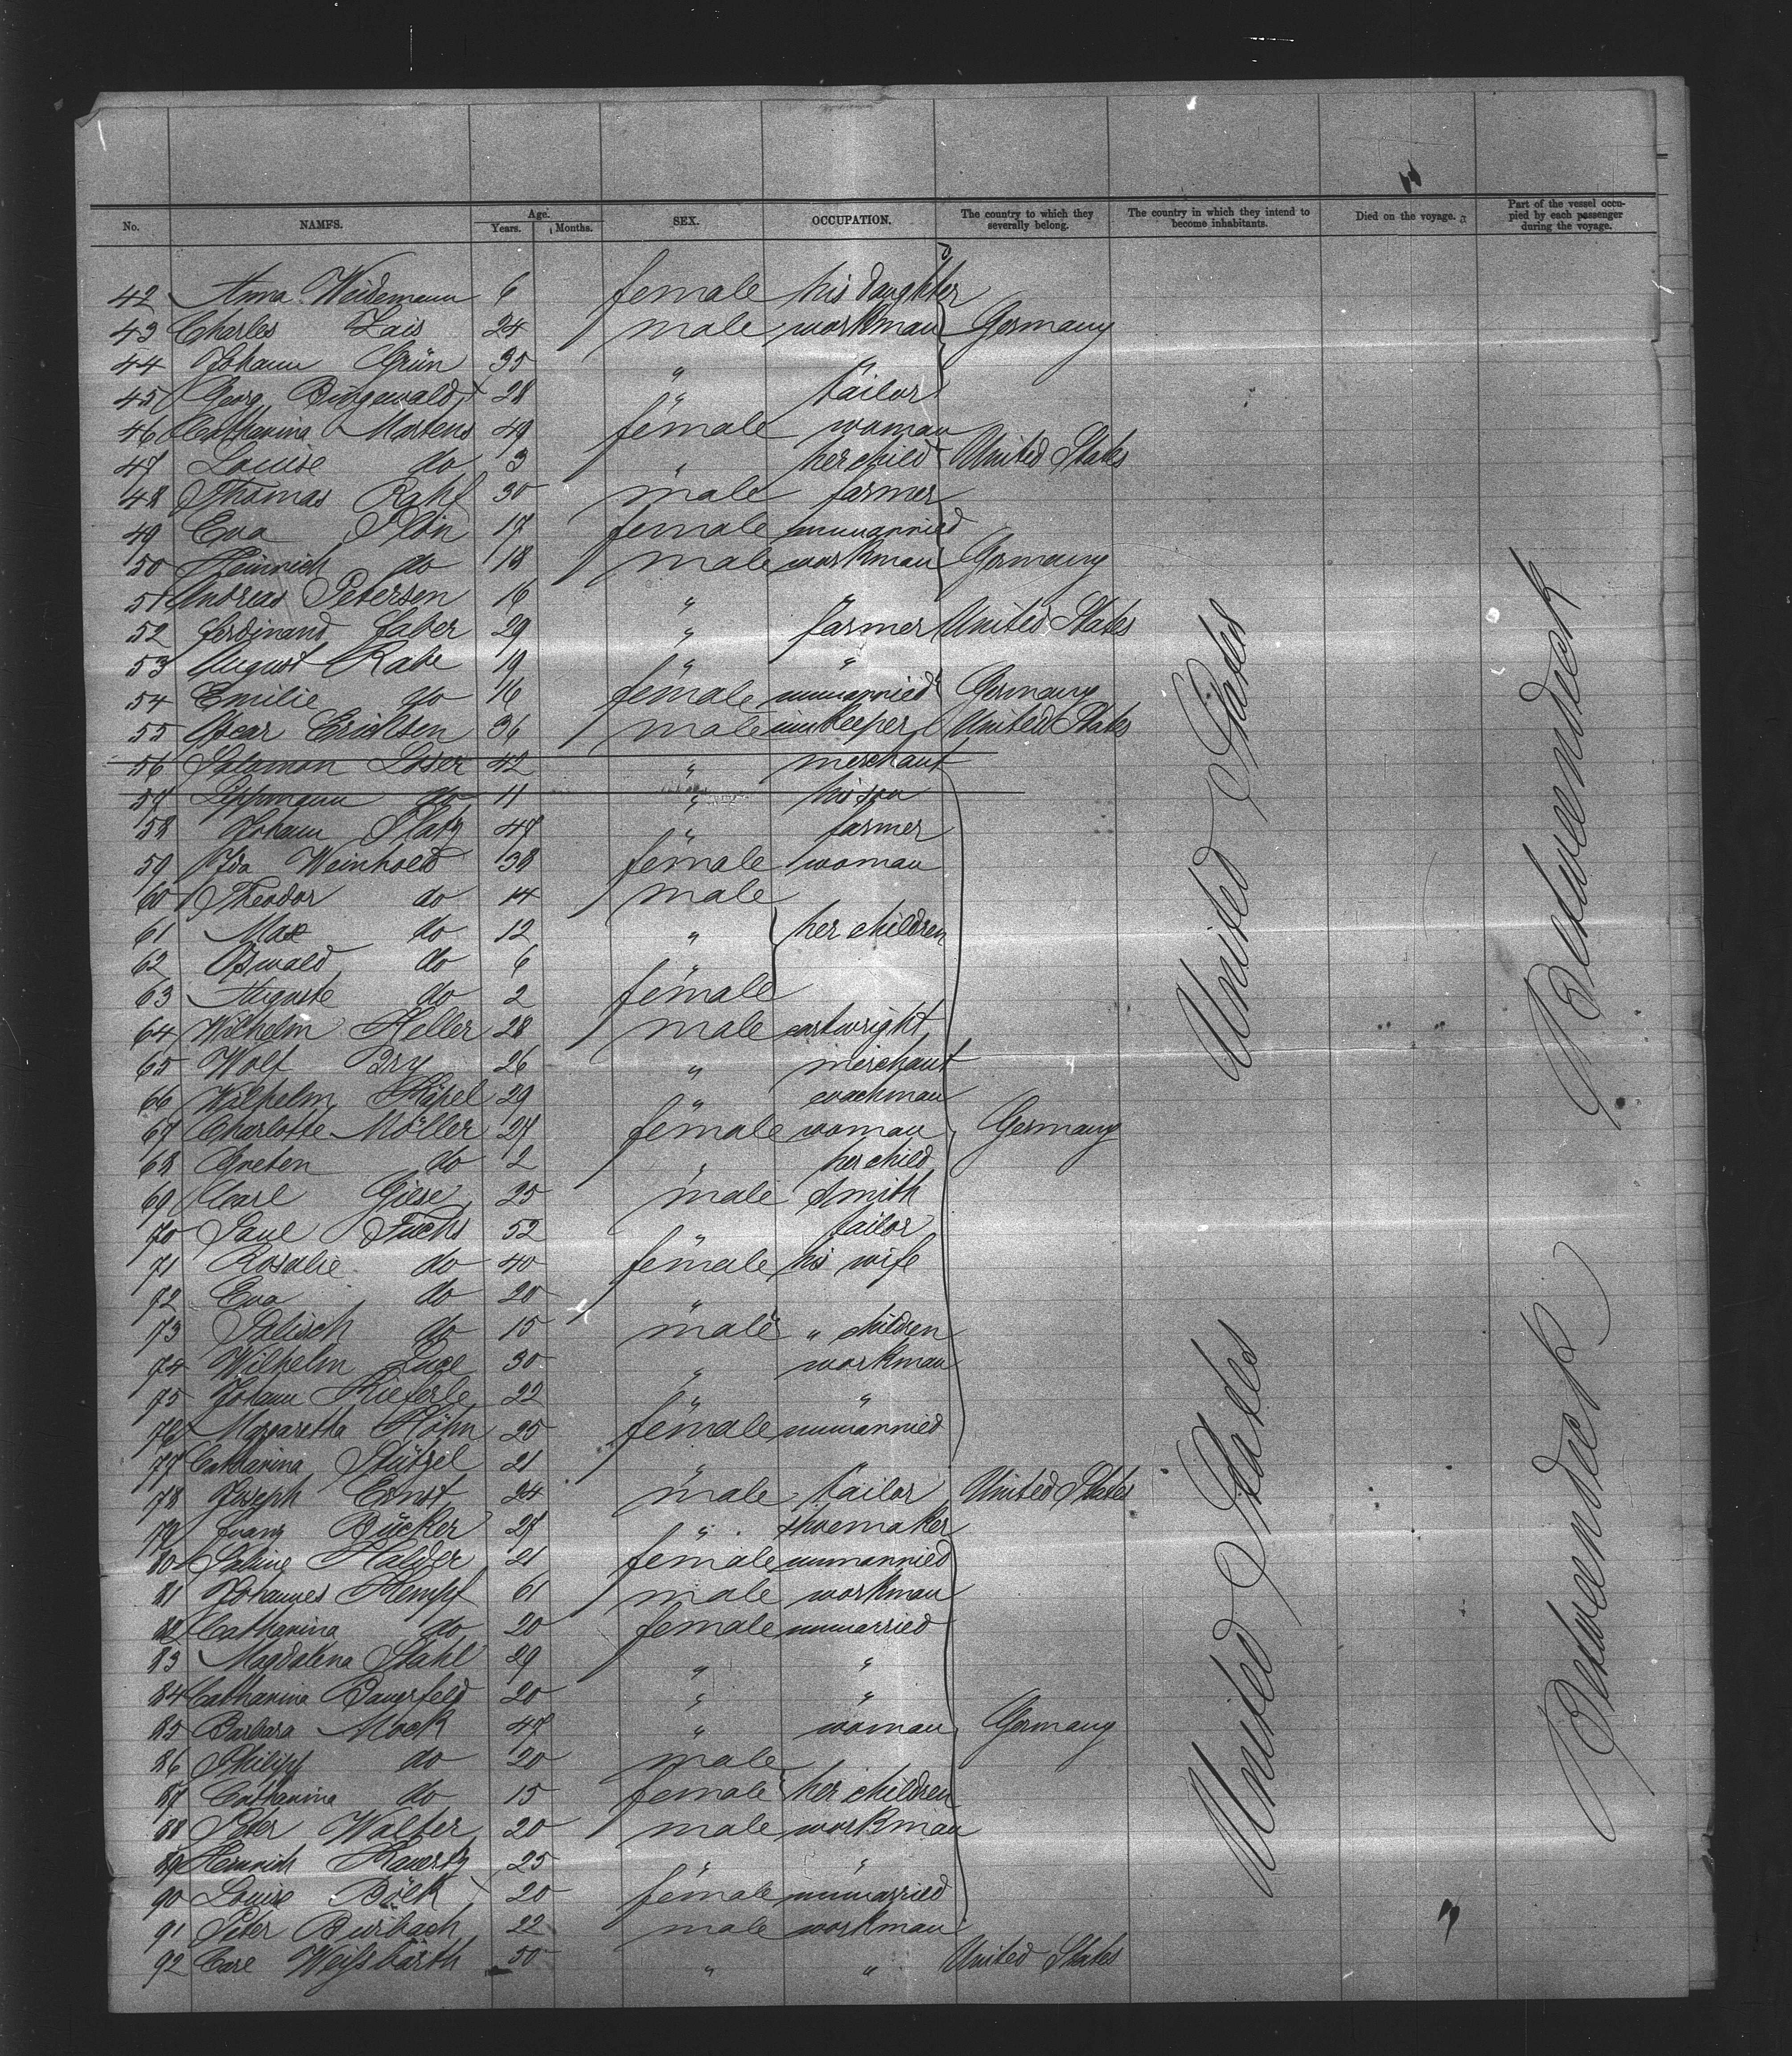 No. NAMES. Age. Years. Months. SEX. OCCUPATION. The country to which they severally belong. The country in which they intend to become inhabitants. Died on the voyage. Part of the vessel occupied by each passenger during the voyage.
42 Anna Weidemann 6 female his daughter
43 Charles Lais 24 male workman Germany
44 Johann Grün 35 " "
45 Georg Bingewald 28 " tailor
46 Catharina Martens 49 female woman
47 Louise do 3 " her child United States
48 Thomas Rahf 30 male farmer
49 Eva Plön 17 female unmarried
50 Heinrich do 18 male workman Germany
51 Andreas Petersen 16 " "
52 Ferdinand Faber 29 " farmer United States
53 August Rabe 19 " "
54 Emilie do 16 female unmarried Germany
55 Oscar Erichsen 36 male innkeeper United States
56 Salomon Loser 42 " merchant
57 Lippmann do 11 " his son
58 Johann Platz 47 " farmer
59 Ida Weinhold 38 female woman
60 Theodor do 14 male
61 Max do 12 " her children
62 Oswald do 6 "
63 Auguste do 2 female
64 Wilhelm Heller 28 male cartwright
65 Wolf Bry 26 " merchant
66 Wilhelm Käpel 29 " coachman
67 Charlotte Möller 27 female woman Germany
68 Greten do 2 " her child
69 Carl Giese 25 male smith
70 Paul Fuchs 52 " tailor
71 Rosalie do 40 female his wife
72 Eva do 20 "
73 Salisch do 15 male " children
74 Wilhelm Luge 30 " workman
75 Johann Kieferle 22 " "
76 Margaretha Höhn 25 female unmarried
77 Catharina Stützel 21 "
78 Joseph Ernst 24 male tailor United States
79 Franz Bücker 27 " shoemaker
80 Sabine Halder 21 female unmarried
81 Johannes Kempf 61 male workman
82 Catharina do 20 female unmarried
83 Magdalena Stahl 29 " "
84 Catharina Bauerfeld 20 " "
85 Barbara Mock 47 " woman Germany
86 Philipp do 20 male
87 Catharina do 15 female her children
88 Peter Walter 20 male workman
89 Heinrich Kauertz 25 " "
90 Louise Bölk 20 female unmarried
91 Peter Burbach 22 male workman
92 Carl Weißbarth 50 " " United States
United States
United States
Betweendeck
Betweendeck